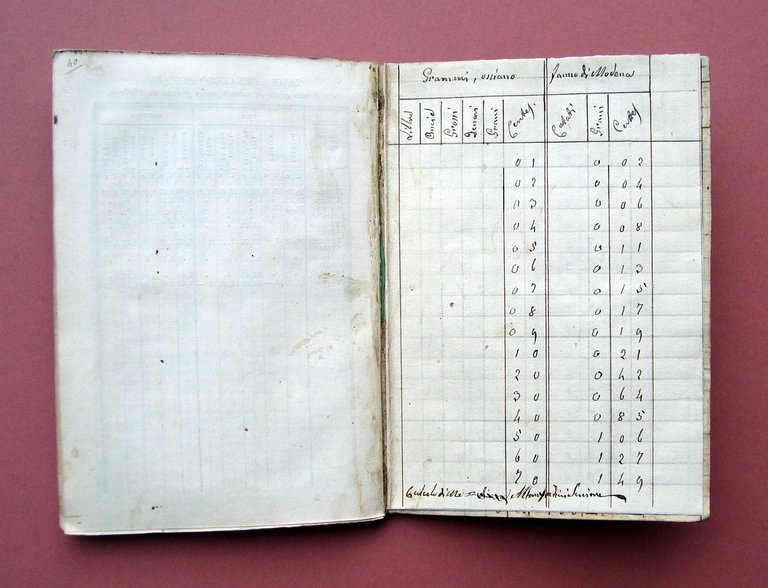 40
Grammi, ossiano fanno di Modena
Libbre Oncie Grossi Denari Grani Centes. Carati Grani Centes.
0 1 0 0 2
0 2 0 0 4
0 3 0 0 6
0 4 0 0 8
0 5 0 1 1
0 6 0 1 3
0 7 0 1 5
0 8 0 1 7
0 9 0 1 9
1 0 0 2 1
2 0 0 4 2
3 0 0 6 4
4 0 0 8 5
5 0 1 0 6
6 0 1 2 7
7 0 1 4 9